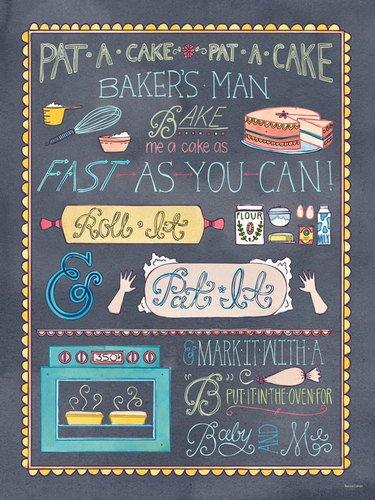 PAT·A·CAKE PAT·A·CAKE
BAKER'S MAN
BAKE
me a cake as
FAST AS·YOU·CAN!
Roll It
FLOUR
& Pat·It
350°
& MARK·IT·WITH·A
"B"
PUT·IT·IN·THE·OVEN·FOR
Baby AND Me